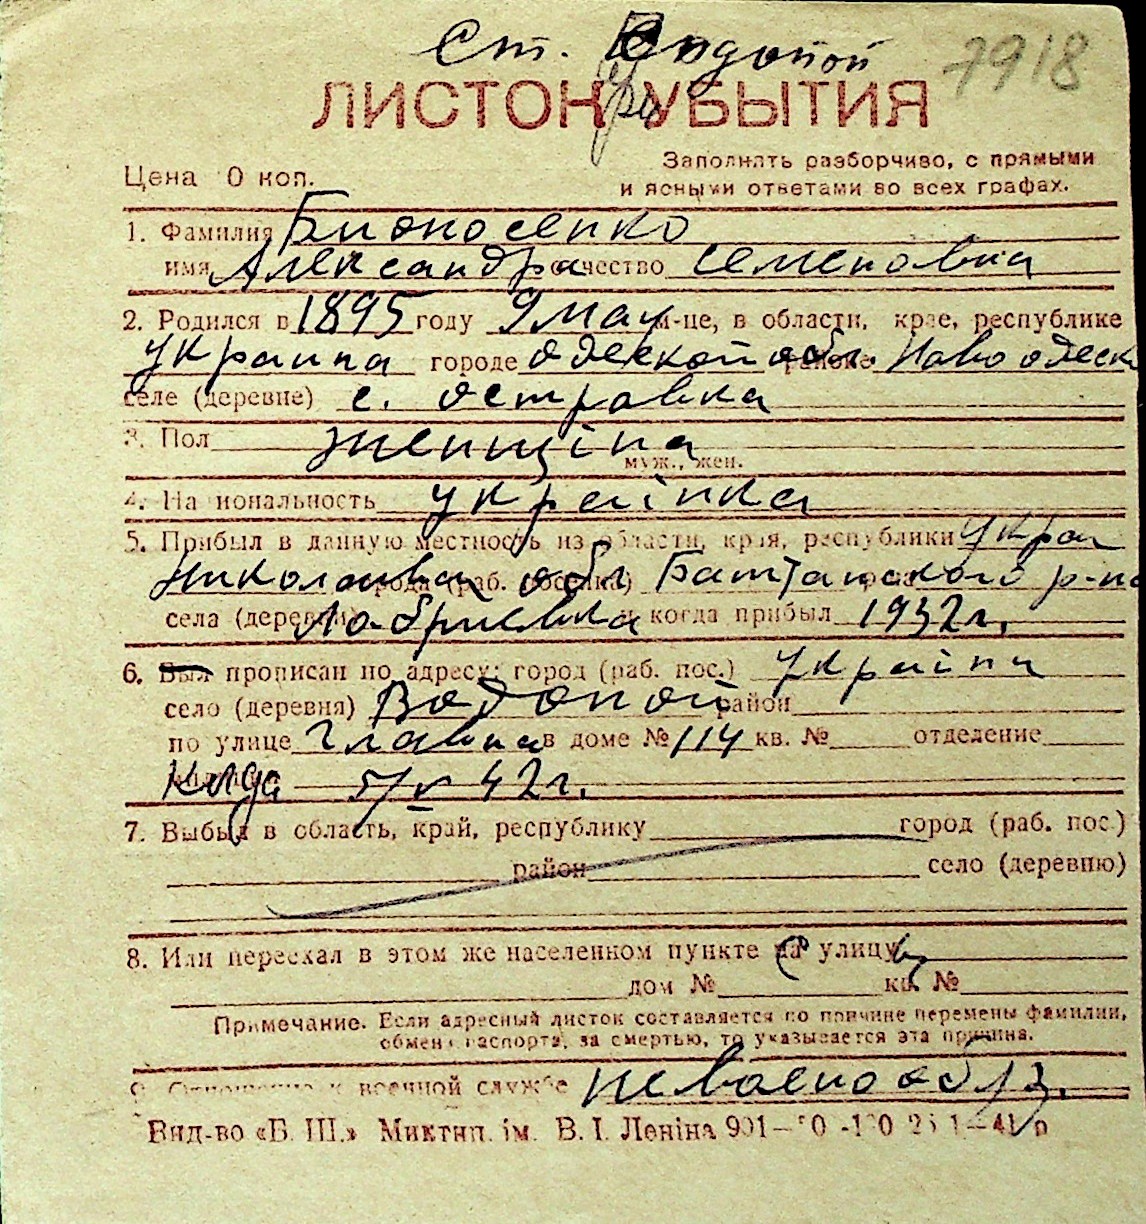 Ст. Водопой 7918
ЛИСТОК УБЫТИЯ
Цена 0 коп.
Заполнять разборчиво, с прямыми
и ясными ответами во всех графах.
1. Фамилия Бионосенко
имя Александра отчество Семеновна
2. Родился в 1895 году 9 мау м-це, в области, крае, республике
Украина городе Одеской обл. районе Ново одеск
селе (деревне) с. Островка
3. Пол Женщіна
муж., жен.
4. Национальность українка
5. Прибыл в данную местность из области, края, республики Украи
города (раб. поселка) обл Баштанского р-на
села (деревни) и когда прибыл 1932 г.
6. Был прописан по адресу: город (раб. пос.) Україна
село (деревня) Водопой район
по улице Главна в доме № 114 кв. № отделение
Когда 5/V 42 г.
7. Выбыл в область, край, республику город (раб. пос.)
район село (деревню)
8. Или переехал в этом же населенном пункте на улицу
дом № кв. №
Примечание. Если адресный листок составляется по причине перемены фамилии,
обмена паспорта, за смертью, то указывается эта причина.
9. Отношение к военной службе невоенообяз.
Вид-во «Б. Ш.» Миктип. ім. В. І. Леніна